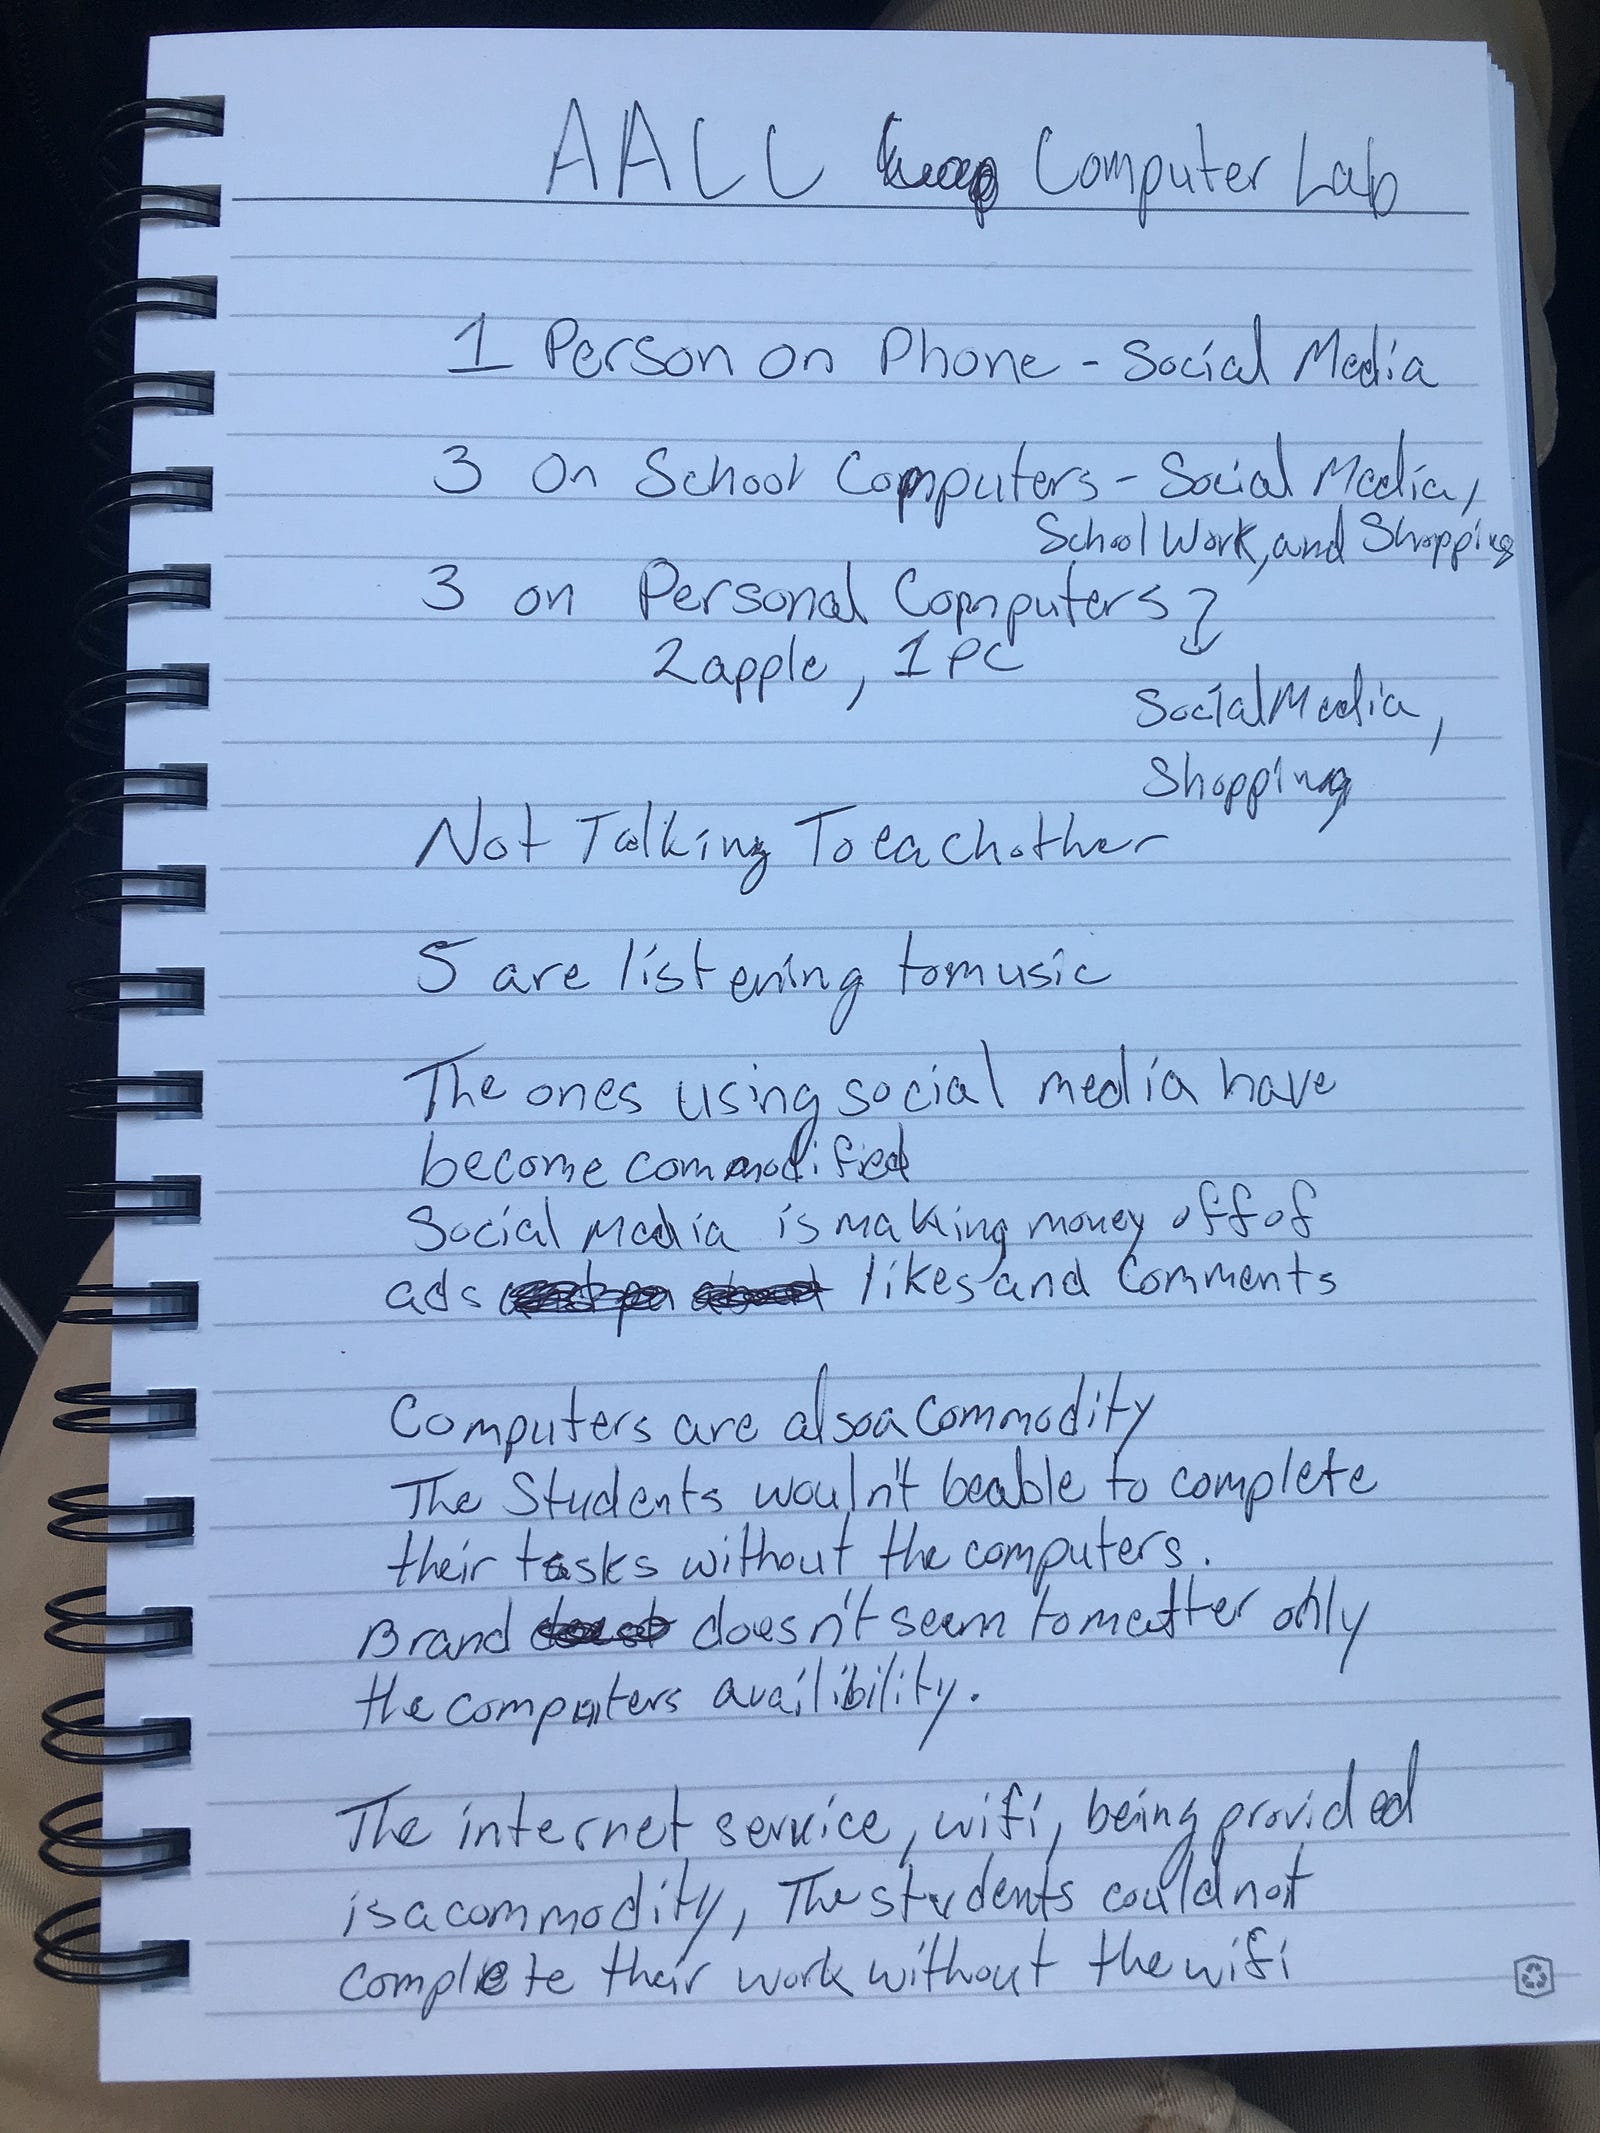 AACC Computer Lab
1 Person on Phone - Social Media
3 On School Computers - Social Media,
School Work, and Shopping
3 on Personal Computers
2 apple, 1 PC
Social Media,
Shopping
Not Talking To eachother
5 are listening to music
The ones using social media have
become commodified
Social Media is making money off of
ads likes and Comments
Computers are also a commodity
The Students wouln't be able to complete
their tasks without the computers.
Brand doesn't seem to matter only
the computers availibility.
The internet service, wifi, being provided
is a commodity, The students could not
complete their work without the wifi